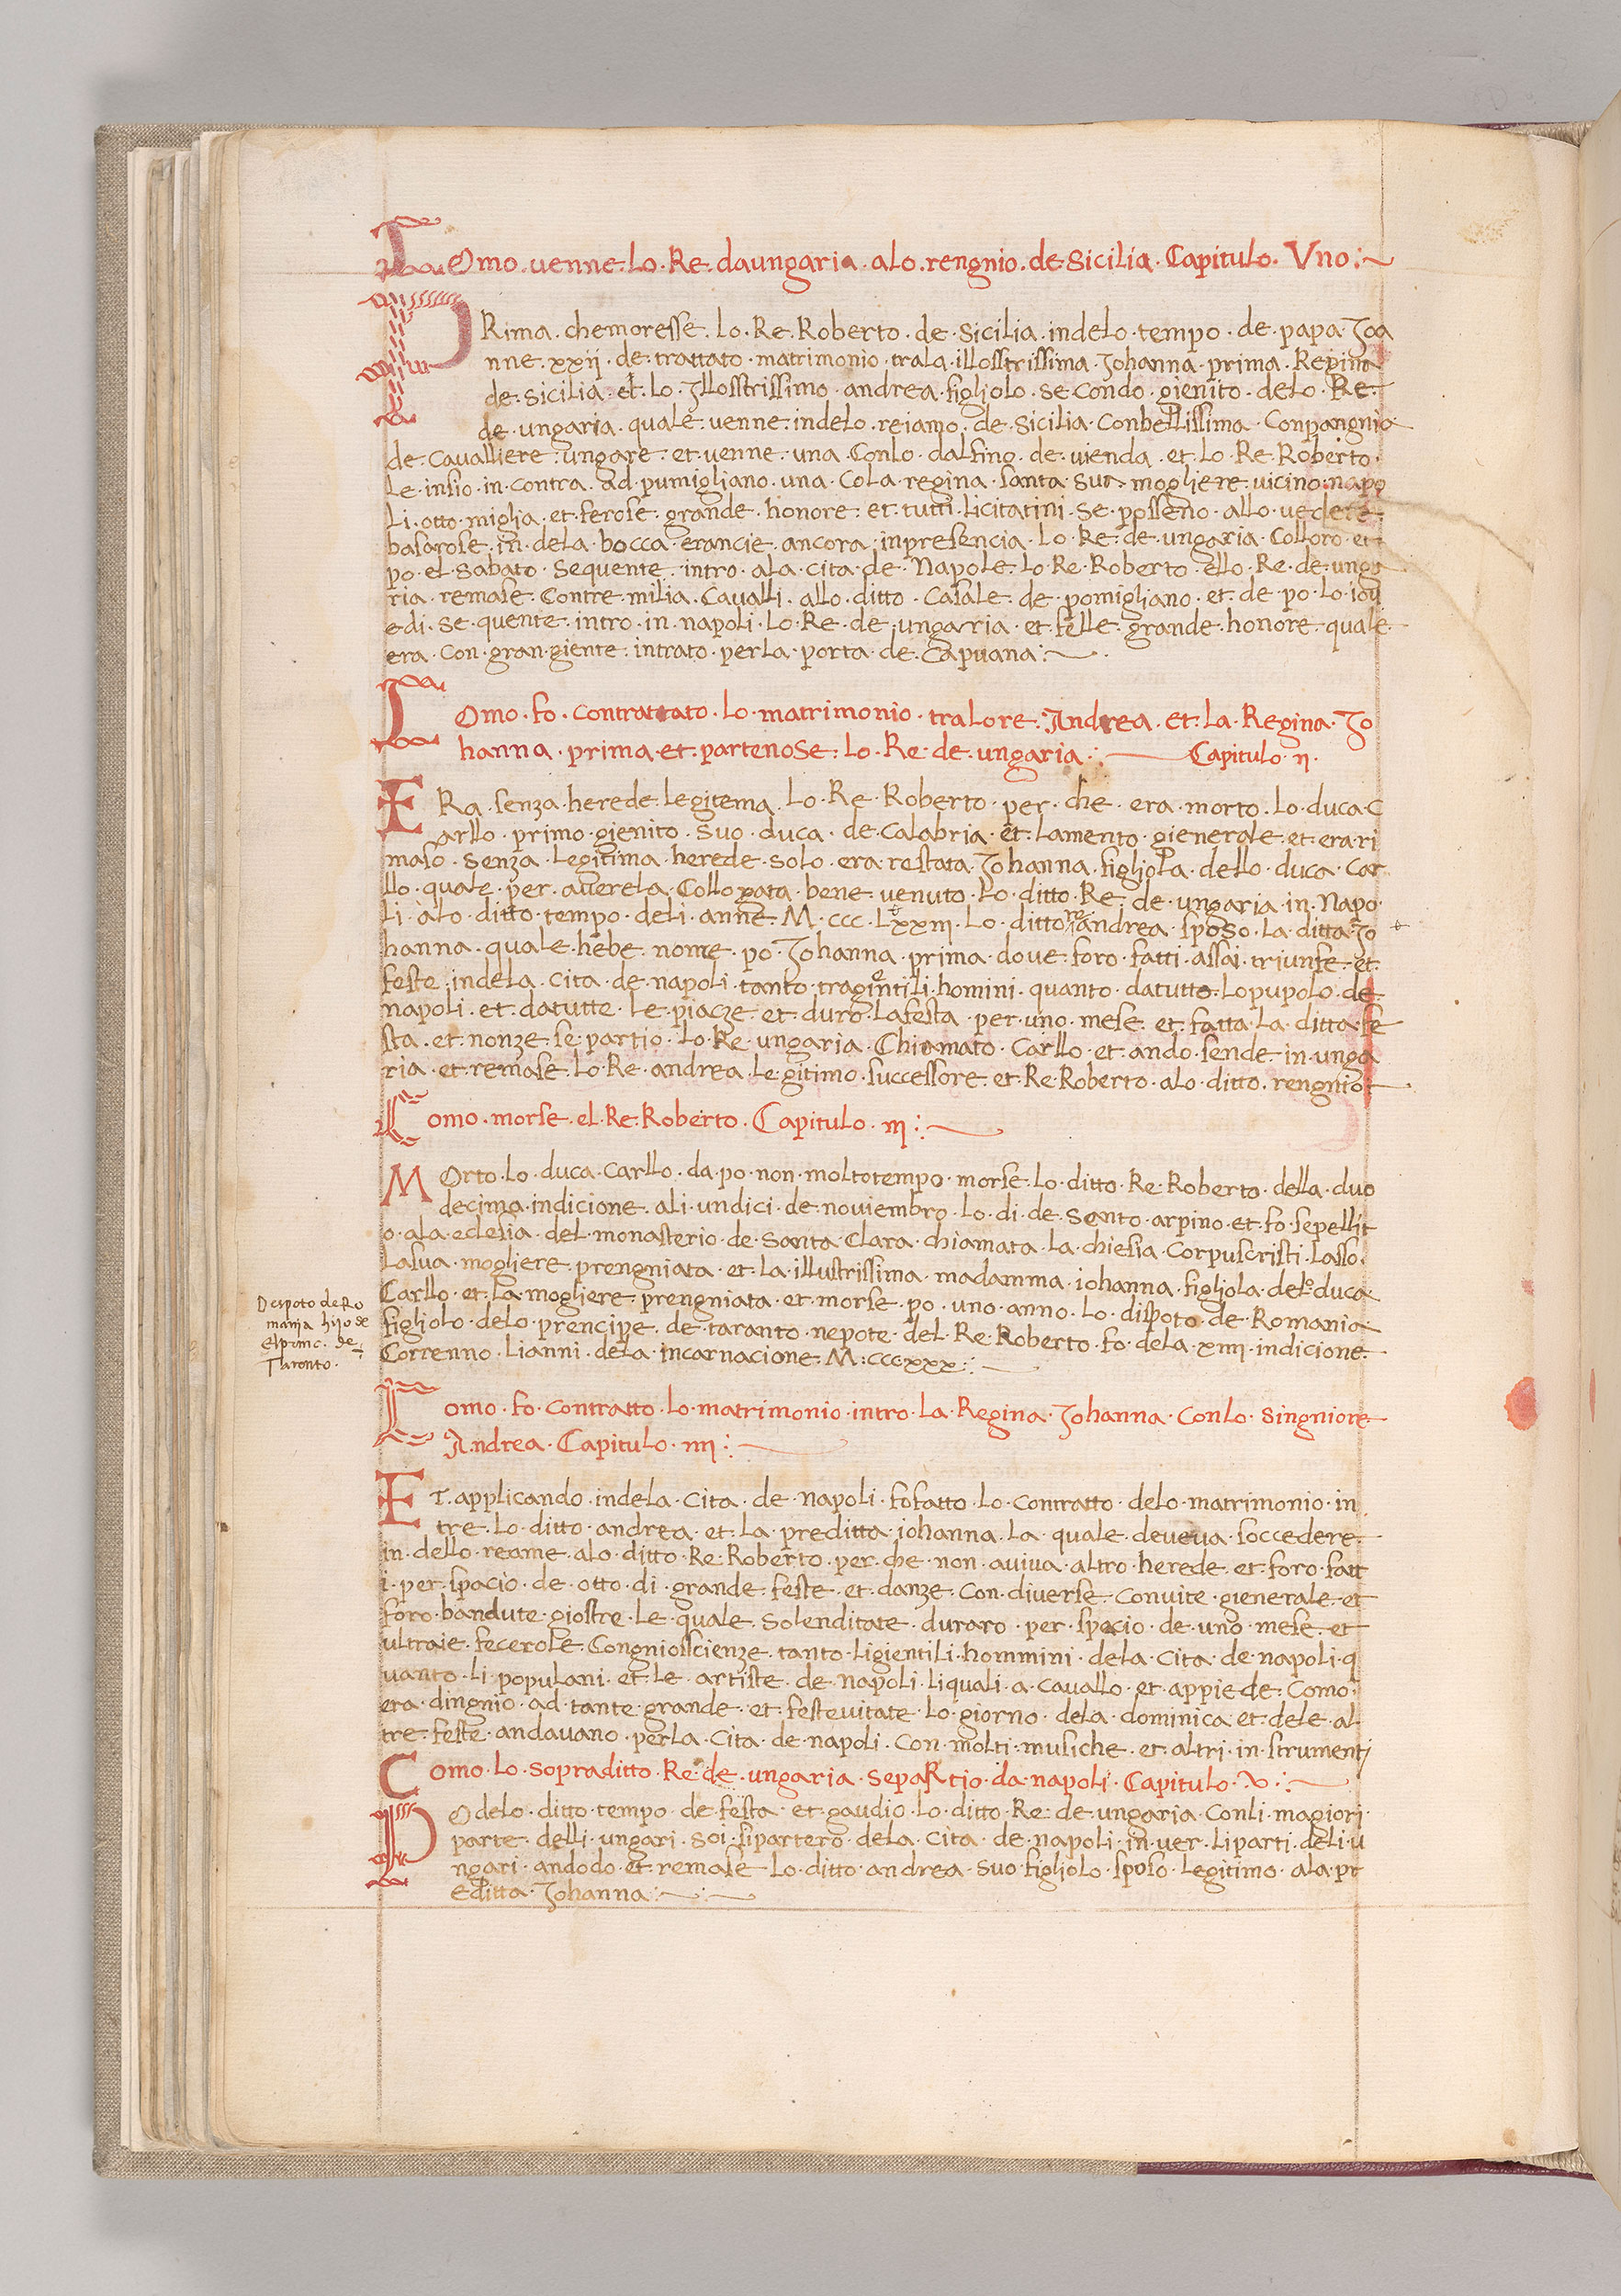 COmo. venne. lo. Re. daungaria. alo. rengnio. de. Sicilia. Capitulo. Vno:~
PRima. chemoresse. lo. Re. Roberto. de. Sicilia. indelo. tempo. de. papa. Joa
nne. xxij. de. trattato. matrimonio. trala. illosstrissima. Johanna. prima. Regina
de. Sicilia. et. lo. Jllosstrissimo. andrea. figliolo. se condo. gienito. delo. Re.
de. ungaria. quale. venne. indelo. reiamo. de. Sicilia. Conbellissima. Conpangnia
de. Cavalliere. ungare. et. venne. una. Conlo. dalfino. de. vienda. et. lo. Re. Roberto.
le. insio. in. contra. ad. pumigliano. una. Cola. regina. santa. sua. mogliere. vicino. napo
li. otto. miglia. et. ferose. grande. honore. et. tutti. licitatini. se. posseno. allo. vedere.
basarose. in. dela. bocca. erancie. ancora. inpresencia. lo. Re. de. ungaria. Colloro. et
po. el. sabato. sequente. intro. ala. cita. de. Napole. lo. Re. Roberto. ello. Re. de. unga
ria. remase. Contre. milia. Cavalli. allo. ditto. Casale. de. pomigliano. et. de. po. lo. iov
edi. se quente. intro. in. napoli. lo. Re. de. ungaria. et. felle. grande. honore. quale.
era. Con. gran. giente. intrato. perla. porta. de. Capuana:~
COmo. fo. contrattato. lo. matrimonio. tralore. Jndrea. et. la. Regina. Jo
hanna. prima. et. partenose. lo. Re. de. ungaria: Capitulo. ij.
ERa. senza. herede. legitema. lo. Re. Roberto. per. che. era. morto. lo. duca. C
arllo. primo. gienito. suo. duca. de. Calabria. et. lamento. gienerale. et. era. ri
maso. senza. legitima. herede. solo. era. restata. Johanna. figliola. dello. duca. Car
llo. quale. per. averela. Collogata. bene. venuto. lo. ditto. Re. de. ungaria. in. Napo.
li. alo. ditto. tempo. deli. anne. M. ccc. Lxxiii. lo. ditto. andrea. sposo. la. ditta. Jo
hanna. quale. hebe. nome. po. Johanna. prima. dove. foro. fatti. assai. triunfe. et.
feste. indela. cita. de. napoli. tanto. tragentili. homini. quanto. datutto. lopupolo. de
napoli. et. datutte. le. piacze. et. duro. lafesta. per. uno. mese. et. fatta. la. ditta. fe
sta. et. nonze. se. partio. lo. Re. ungaria. Chiamato. Carllo. et. ando. sende. in. unga
ria. et. remase. lo. Re. andrea. legitimo. successore. et. Re. Roberto. alo. ditto. rengnio.
Como. morse. el. Re. Roberto. Capitulo. iij:~
MOrto. lo. duca. Carllo. da. po. non. moltotempo. morse. lo. ditto. Re. Roberto. della. duo
decima. indicione. ali. undici. de. noviembro. lo. di. de. santo. arpino. et. fo. sepellit
o. ala. eclesia. del. monasterio. de. Santa. Clara. chiamata. la. chiesia. Corpuscristi. lasso.
Lasua. mogliere. prengniata. et. la. illustrissima. madamma. iohanna. figliola. delo. duca
Carllo. et. la. mogliere. prengniata. et. morse. po. uno. anno. lo. dispoto. de. Romania
figliolo. delo. prencipe. de. taranto. nepote. del. Re. Roberto. fo. dela. xiiij. indicione.
Correnno. lianni. dela. incarnacione. M. cccxxx:~
Despoto de Ro
mania hijo de
el princ. de
Taronto.
Como. fo. contratto. lo. matrimonio. intro. la. Regina. Johanna. Conlo. singniore
Andrea. Capitulo. iiij:~
ET. applicando. indela. Cita. de. napoli. fofatto. lo. contratto. delo. matrimonio. in
tre. lo. ditto. andrea. et. la. preditta. iohanna. la. quale. deveva. soccedere.
in. dello. reame. alo. ditto. Re. Roberto. per. che. non. aviva. altro. herede. et. foro. fatt
i. per. spacio. de. otto. di. grande. feste. et. danze. Con. diverse. Convite. gienerale. et
foro. bandute. giostre. le. quale. solenditate. duraro. per. spacio. de. uno. mese. et
ultraie. fecerose. Congniosscienze. tanto. ligientili. hommini. dela. cita. de. napoli. q
uanto. li. populani. et. le. artiste. de. napoli. liquali. a. cavallo. et. appiede. Como.
era. dingnio. ad. tante. grande. et. festevitate. lo. giorno. dela. dominica. et. dele. al
tre. feste. andavano. perla. Cita. de. napoli. Con. molti. musiche. et. altri. in. strumenti
Como. lo. sopraditto. Re. de. ungaria. sepaRtio. da. napoli. Capitulo. v:~
POdelo. ditto. tempo. de. festa. et. gaudio. lo. ditto. Re. de. ungaria. Conli. magiori.
parte. delli. ungari. soi. sipartero. dela. cita. de. napoli. in. ver. liparti. deli. u
ngari. andodo. et. remase. lo. ditto. andrea. suo. figliolo. sposo. legitimo. ala. pr
editta. Johanna:~